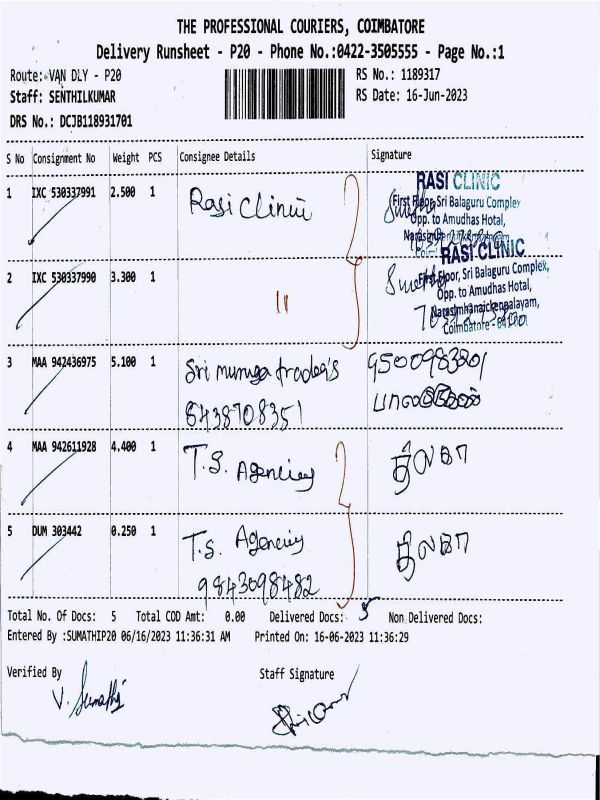 THE PROFESSIONAL COURIERS, COIMBATORE
Delivery Runsheet - P20 - Phone No.:0422-3505555 - Page No.:1
Route: VAN DLY - P20
RS No.: 1189317
Staff: SENTHILKUMAR
RS Date: 16-Jun-2023
DRS No.: DCJB118931701
S No Consignment No Weight PCS Consignee Details Signature
1 IXC 530337991 2.500 1 Rasi Clinic
RASI CLINIC
First Floor, Sri Balaguru Complex
Opp. to Amudhas Hotal,
2 IXC 530337990 3.300 1 "
RASI CLINIC
First Floor, Sri Balaguru Complex,
Opp. to Amudhas Hotal,
Narasimhanaickenpalayam,
Coimbatore
3 MAA 942436975 5.100 1 Sri muruga trader's
8438708351
4 MAA 942611928 4.400 1 T.S. Agencies திலகா
5 DUM 303442 0.250 1 T.S. Agencies திலகா
9843098482
Total No. Of Docs: 5 Total COD Amt: 0.00 Delivered Docs: 5 Non Delivered Docs:
Entered By :SUMATHIP20 06/16/2023 11:36:31 AM Printed On: 16-06-2023 11:36:29
Verified By Staff Signature
V. Sumathi